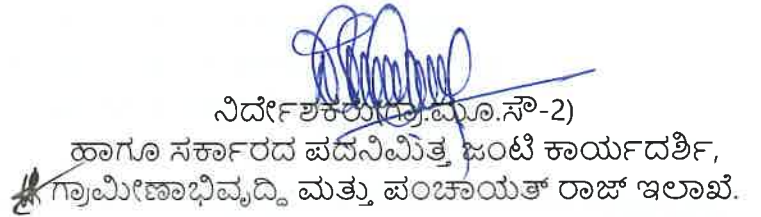 ನಿರ್ದೇಶಕರು(ಗ್ರಾ.ಮೂ.ಸೌ-2)
ಹಾಗೂ ಸರ್ಕಾರದ ಪದನಿಮಿತ್ತ ಜಂಟಿ ಕಾರ್ಯದರ್ಶಿ,
ಗ್ರಾಮೀಣಾಭಿವೃದ್ಧಿ ಮತ್ತು ಪಂಚಾಯತ್ ರಾಜ್ ಇಲಾಖೆ.